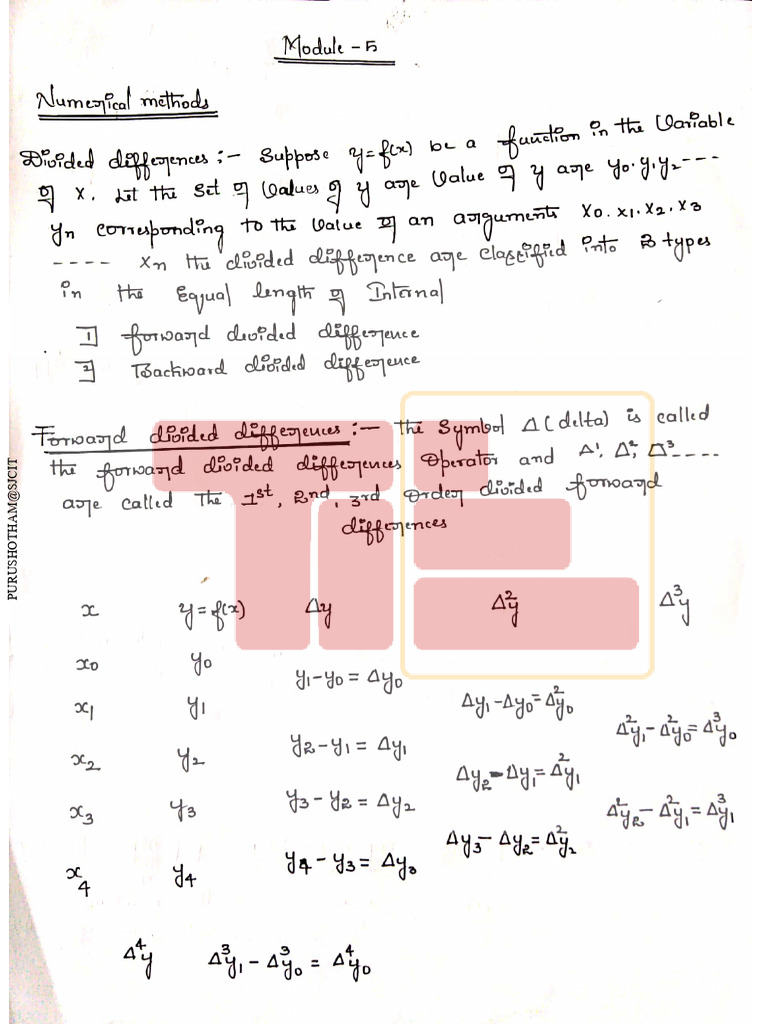 Module - 5
Numerical methods
Divided differences :- Suppose y=f(x) be a function in the Variable
of x. Let the set of Values of y are Value of y are y0. y1 y2 ---
yn corresponding to the Value of an arguments x0. x1. x2. x3
---- xn the divided difference are classified into 2 types
in the Equal length of Internal
1] forward divided difference
2] Backward divided difference
Forward divided differences :- the symbol Δ (delta) is called
the forward divided differences operator and Δ¹, Δ², Δ³ ----
are called the 1st, 2nd, 3rd order divided forward
differences
x y=f(x) Δy Δ²y Δ³y
x0 y0
y1-y0 = Δy0
x1 y1 Δy1-Δy0=Δ²y0
y2-y1 = Δy1 Δ²y1-Δ²y0=Δ³y0
x2 y2 Δy2-Δy1=Δ²y1
x3 y3 y3-y2 = Δy2 Δ²y2-Δ²y1=Δ³y1
Δy3-Δy2=Δ²y2
x4 y4 y4-y3 = Δy3
Δ⁴y Δ³y1-Δ³y0 = Δ⁴y0
PURUSHOTHAM@SJCIT